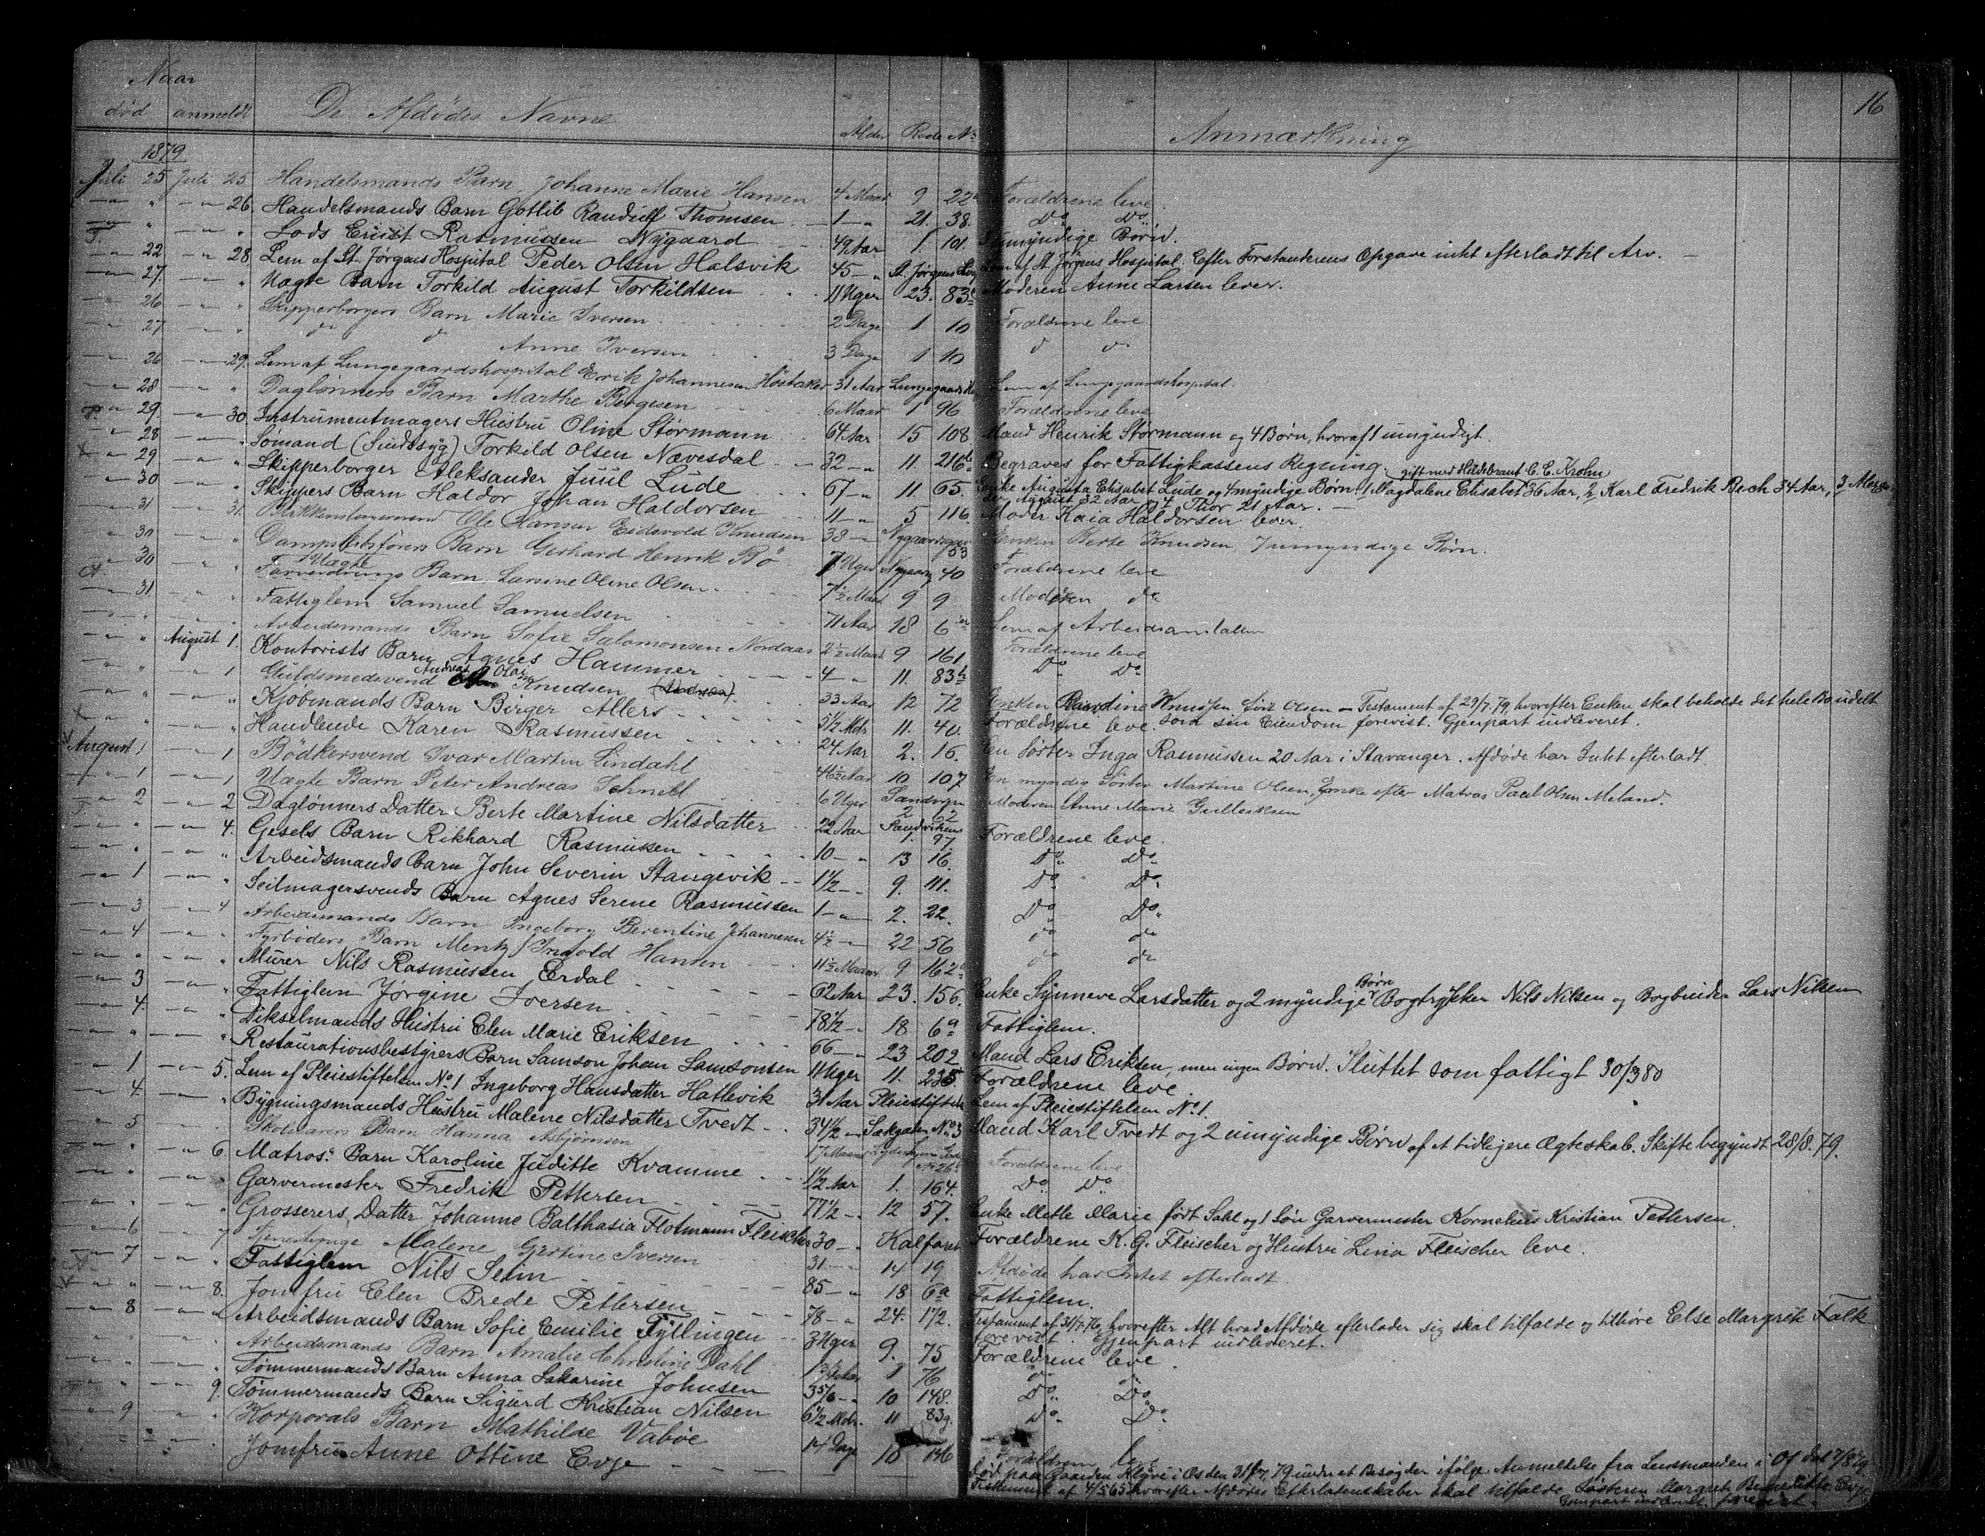 Naar
død anmeldt De Afdødes Navne Alder Rode No Anmærkning 16
1879
Juli 25 Juli 25 Handelsmands Barn Johanne Marie Hansen 4 Maar 9 22 Forældrene leve
" 26. Handelsmands Barn Gotlib Randulf Thomsen 1 21. 38. Do Do
" " Lods Ernst Rasmussen Nygaard 49 Aar 1. 101 Umyndige Børn.
22 28. Lem af St. Jørgens Hospital Peder Olsen Halsvik 45 St. Jørgens Lem af St. Jørgens Hospital. Efter Forstanderens Opgave intet efterladt til Arv.
27. " Uægte Barn Torkild August Torkildsen 11 Uger 23. 83 Moderen Anne Larsen lever.
26 " Skipperborgers Barn Marie Iversen 2 Dage 1 10 Forældrene leve
27 " do d Anne Iversen 3 Dage 1 10 d do
26 29. Lem af Lungegaardshospital Erik Johannesen 31 Aar Lungegaards Lem af Lungegaardshospital.
28 " Daglønners Barn Marthe Børgesen 6 Maar 1 96 Forældrene leve
29 30. Instrumentmagers Hustru Oline Störmann 64 Aar 15 108. Mand Henrik Störmann og 4 Børn, hvoraf 1 umyndigt.
28 " Sömand (Sindssyg) Torkild Olsen Nævesdal 32 11. 216b Begraves for Fattigkassens Regning.
29 " Skipperborger Aleksander Juul Lude 67 11. 65. Enke Augusta Elisabet Lude og 4 myndige Børn: 1 Magdalene Elisabet gift med Hildebrant C. E. Krohn 36 Aar, 2, Karl Fredrik Bech 34 Aar, 3
August 32 Aar og 4 Thor 21 Aar.
30 " Skippers Barn Haldor Johan Haldorsen 11 5 116 Moder Kaia Haldorsen lever.
31 31. Ole Hansen Eidsvold Knudsen 38 Nygaards 53 Enken Berte Knudsen, 7 umyndige Børn.
30 " Dampskibsførers Barn Gerhard Henrik Bö 7 Uger Nygaards 40 Forældrene leve
30 " Uægte Barn Larsine Oline Olsen 7 1/2 Maar 9 9 Moderen do
31. " Fattiglem Samuel Samuelsen 71 Aar 18 6 Lem af Arbeidsanstalten
" " Arbeidsmands Barn Sofie Salomonsen Nordaas 2 1/2 Maar 9 161 Forældrene leve
" August 1. Kontorists Barn Agnes Hammer 4 11. 83b Do Do
" 1 Guldsmedsvend Andreas Olai Knudsen 33 Aar 12 72 Enken Knudsen født Olsen — Testament af 29/7.79, hvorefter Enken skal beholde det hele Bo udelt
som sin Eiendom forevist. Gjenpart indleveret.
" " Kjøbmands Barn Birger Allers 5 1/2 Mdr 11. 40. Forældrene leve.
" " Handlende Karen Rasmussen 24 Aar 2. 16. En Söster Inga Rasmussen 20 Aar i Stavanger. Afdøde har Intet efterladt.
August 1 1 Bödkersvend Ivar Martin Lindahl 46 1/2 Aar 10 107 En myndig Söster Martine Olsen, Enke efter Matros Paul Olsen Meland.
1 1 Uægte Barn Peter Andreas Schnell 6 Uger Sandvigen 2 62 Moderen Anne Marie Gulleiksen
2 2 Daglønners Datter Berte Martine Nilsdatter 22 Aar Sandviken 1. 97 Forældrene leve.
" 4. Gesels Barn Rikhard Rasmussen 10 13 16. Do Do
" " Arbeidsmands Barn John Severin Stangevik 1 1/2 9. 41. Do Do
1 " Seilmagersvends Barn Agnes Serene Rasmussen 1 2. 22. Do Do
3 4 Arbeidsmands Barn Ingeborg Berentine Johannesen 4 1/2 22 56 do do
4 " Fyrbøders Barn Mentz Ingold Hansen 11 1/2 Maan 9 162 do do
" " Murer Nils Rasmussen Erdal 62 Aar 23. 156. Enke Synneve Larsdatter og 2 myndige Børn Bogtrykker Nils Nilsen og Bogbinder Lars Nilsen
3 " Fattiglem Jørgine Iversen 78 1/2 18 6a Fattiglem.
4. " Vikselmands Hustru Elen Marie Eriksen 66 23 202 Mand Lars Eriksen, men ingen Børn. Sluttet som fattigt 30/3 80
" " Restaurationsbestyrers Barn Samson Johan Samsonsen 11 Uger 11. 235 Forældrene leve
1 5. Lem af Pleiestiftelsen No 1 Ingeborg Hansdatter Hatlevik 31 Aar Pleiestiftels Lem af Pleiestiftelsen No 1.
4. " Bygningsmands Hustru Malene Nilsdatter Tvedt 34 1/2 No 3 Mand Karl Tvedt og 2 umyndige Børn af et tidligere Ægteskab. Skifte begyndt 28/8.79.
5 " Skolelærers Barn Hanna Asbjörnsen 17 Maan No 26 Forældrene leve
" 6 Matros. Barn Karoline Juditte Kvamme 1 1/2 Aar 1. 164. Do Do
" " Garvermester Fredrik Pettersen 77 1/2 12 57. Enke Mette Marie født Sahl og 1 Søn Garvermester Kornelius Kristian Pettersen.
" " Grosserers Datter Johanne Balthasia Flotmann Fleischer 30 Kalfaret Forældrene K. G. Fleischer og Hustru Lina Fleischer leve.
6 7 Tjenestepige Malene Gertine Iversen 31 14 19 Afdøde har Intet efterladt.
7 " Fattiglem Nils Selin 85 18 6a Fattiglem.
" 8. Jomfru Elen Brede Pettersen 78 24. 172. Testament af 31/7.76, hvorefter Alt hvad Afdøde efterlader sig skal tilfalde og tilhøre Else Margrete Falk
forevist. Gjenpart indleveret.
8 " Arbeidsmands Barn Sofie Emilie Tyllingen 3 Uger 9. 75 Forældrene leve.
" " Arbeidsmands Barn Amalie Christine Dahl 1 3/4 Aar 1 76 do do
" " Tømmermands Barn Anna Sakarine Johnsen 3 5/6 10 148. Do Do
" 9. Tømmermands Barn Sigurd Kristian Nilsen 6 1/2 Mdr. 11 83g. Do Do
9 " Korporals Barn Mathilde Vabøe 14 Dage 10 146 Forældrene leve
" " Jomfru Anne Ottine Evje Död paa Gaarden Klyve i Os den 31/7.79 under et Besøg der ifølge Anmeldelse fra Lensmanden i Os dat 7/8.79.
Testament af 4/5 65 hvorefter Afdødes Efterladenskaber skal tilfalde Søsteren Margrete Benedikte Evje
Gjenpart indleveret forevist.